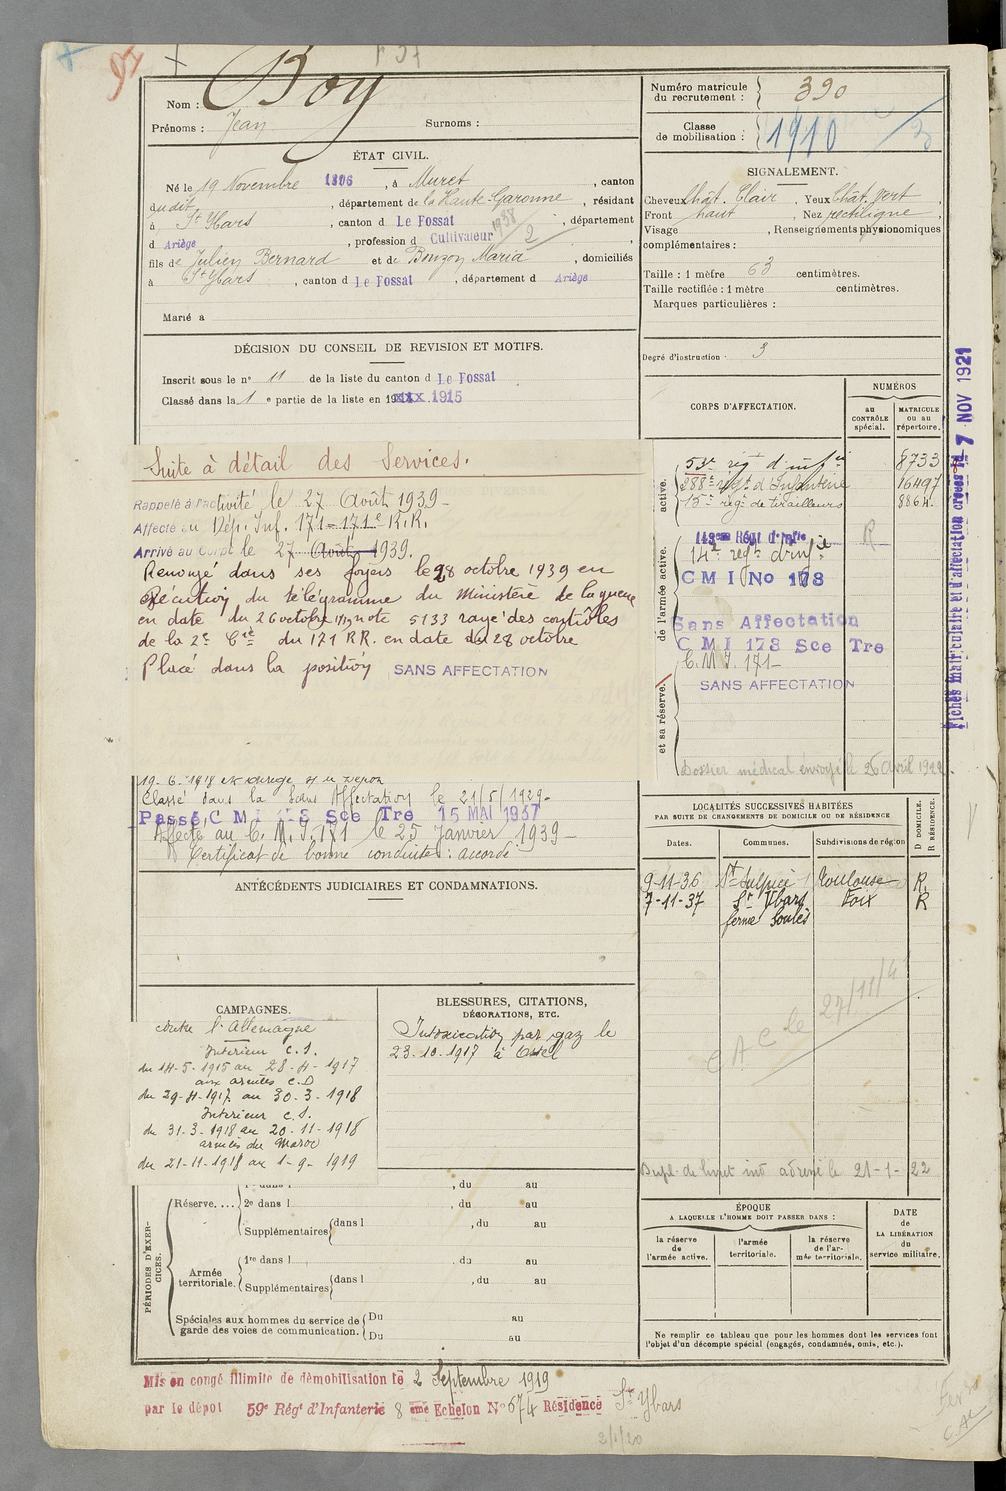 97
Nom : Boy
Prénoms : Jean Surnoms :
ÉTAT CIVIL.
Né le 19 Novembre 1896, à Muret, canton
dudit, département de la Haute-Garonne, résidant
à St Ybars, canton d Le Fossat, département
d Ariège, profession d Cultivateur
1938
2
fils de Julien Bernard et de Bouzon Maria, domiciliés
à St Ybars, canton d Le Fossat, département d Ariège
Marié à
DÉCISION DU CONSEIL DE REVISION ET MOTIFS.
Inscrit sous le n° 11 de la liste du canton d Le Fossat
Classé dans la 1 e partie de la liste en 19xxx 1915
Suite à détail des Services.
Rappelé à l'activité le 27 Août 1939-
Affecté au Dép. Inf. 171 = 171e R.R.
Arrivé au Corps le 27 Août 1939.
Renvoyé dans ses foyers le 28 octobre 1939 en
exécution du télégramme du Ministère de la guerre
en date du 26 octobre note 5133 rayé des contrôles
de la 2e Cie du 171 R.R. en date du 28 octobre
Placé dans la position SANS AFFECTATION
19. 6. 1918
Classé dans la Sans Affectation le 21/5/1929-
Passé C M I 178 Sce Tre 15 MAI 1937
Affecté au C. M. I. 171 le 25 Janvier 1939-
Certificat de bonne conduite : accordé
ANTÉCÉDENTS JUDICIAIRES ET CONDAMNATIONS.
CAMPAGNES.
contre l'Allemagne
Intérieur C. S.
du 14-5-1915 au 28-4-1917
aux armées C. D
du 29-4-1917 au 30-3-1918
Intérieur C. S.
du 31-3-1918 au 20-11-1918
armées du Maroc
du 21-11-1918 au 1-9-1919
BLESSURES, CITATIONS,
DÉCORATIONS, ETC.
Intoxication par gaz le
23-10-1917 à Ostel
PÉRIODES D'EXERCICES.
Réserve....
1re dans l , du au
2e dans l , du au
Supplémentaires dans l , du au
Armée territoriale.
1re dans l , du au
Supplémentaires dans l , du au
Spéciales aux hommes du service de
garde des voies de communication.
Du au
Du au
Mis en congé illimité de démobilisation le 2 Septembre 1919
par le dépôt 59e Régt d'Infanterie 8 eme Echelon N° 674 Résidence St Ybars
2/1/20
Numéro matricule
du recrutement : 390
Classe
de mobilisation : 1910
SIGNALEMENT.
Cheveux Chât. Clair, Yeux Chât. vert,
Front haut, Nez rectiligne
Visage , Renseignements physionomiques
complémentaires :
Taille : 1 mètre 63 centimètres.
Taille rectifiée : 1 mètre centimètres.
Marques particulières :
Degré d'instruction : 3
CORPS D'AFFECTATION.
NUMÉROS
au
CONTRÔLE
spécial.
MATRICULE
ou au
répertoire.
active.
53e rég d'infie 8733
288e régt d'Infanterie 16497
15e régt de tirailleurs 8864
de l'armée active.
et sa réserve.
149eme Régt d'Infie
14e régt d'infie R
C M I No 178
Sans Affectation
C M I 178 Sce Tre
C. M. I. 171-
SANS AFFECTATION
Dossier médical envoyé le 26 Avril 1922.
LOCALITÉS SUCCESSIVES HABITÉES
PAR SUITE DE CHANGEMENTS DE DOMICILE OU DE RÉSIDENCE
Dates. Communes. Subdivisions de région
D DOMICILE.
R RÉSIDENCE.
9-11-36 St Sulpice Toulouse R.
7-11-37 St Ybars Foix R
ferme Soulès
C A C le 27/11/4
Dupl. de livret ind adressé le 21-1-22
ÉPOQUE
A LAQUELLE L'HOMME DOIT PASSER DANS :
la réserve
de
l'armée active.
l'armée
territoriale.
la réserve
de l'ar-
mée territoriale.
DATE
de
LA LIBÉRATION
du
service militaire.
Ne remplir ce tableau que pour les hommes dont les services font
l'objet d'un décompte spécial (engagés, condamnés, omis, etc.).
Fiches matriculaire et d'affectation créées le 7 NOV 1921